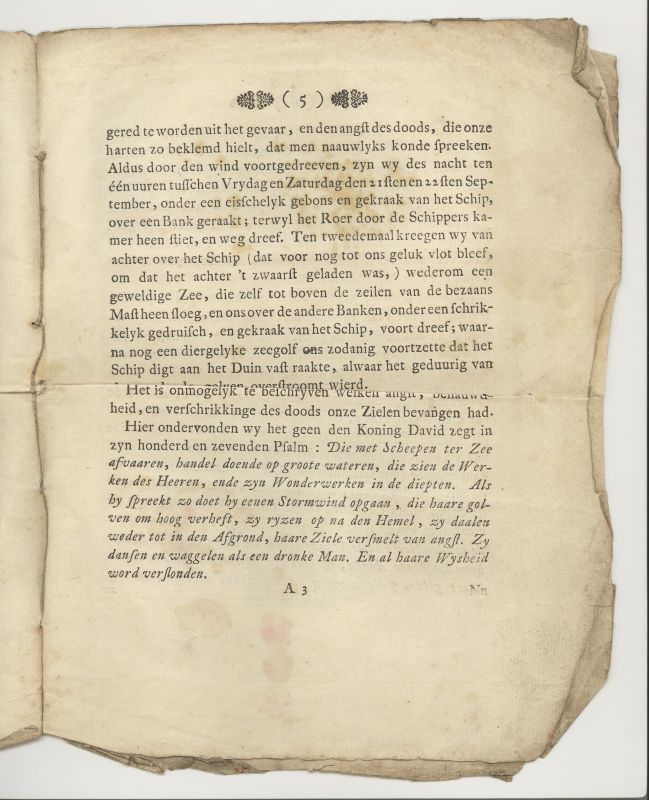 ( 5 )
gered te worden uit het gevaar, en den angſt des doods, die onze
harten zo beklemd hielt, dat men naauwlyks konde ſpreeken.
Aldus door den wind voortgedreeven, zyn wy des nacht ten
één uuren tuſſchen Vrydag en Zaturdag den 21ſten en 22ſten Sep-
tember, onder een eisſchelyk gebons en gekraak van het Schip,
over een Bank geraakt; terwyl het Roer door de Schippers ka-
mer heen ſtiet, en weg dreef. Ten tweedemaal kreegen wy van
achter over het Schip (dat voor nog tot ons geluk vlot bleef,
om dat het achter 't zwaarſt geladen was,) wederom een
geweldige Zee, die zelf tot boven de zeilen van de bezaans
Maſt heen ſloeg, en ons over de andere Banken, onder een ſchrik-
kelyk gedruiſch, en gekraak van het Schip, voort dreef; waar-
na nog een diergelyke zeegolf ons zodanig voortzette dat het
Schip digt aan het Duin vaſt raakte, alwaar het geduurig van
overſtroomt wierd.
Het is onmogelyk te beſchryven welken angſt, benauwd-
heid, en verſchrikkinge des doods onze Zielen bevangen had.
Hier ondervonden wy het geen den Koning David zegt in
zyn honderd en zevenden Pſalm : Die met Scheepen ter Zee
afvaaren, handel doende op groote wateren, die zien de Wer-
ken des Heeren, ende zyn Wonderwerken in de diepten. Als
hy ſpreekt zo doet hy eenen Stormwind opgaan, die haare gol-
ven om hoog verheft, zy ryzen op na den Hemel, zy daalen
weder tot in den Afgrond, haare Ziele verſmelt van angſt. Zy
danſen en waggelen als een dronke Man. En al haare Wysheid
word verſlonden.
A 3
Nu